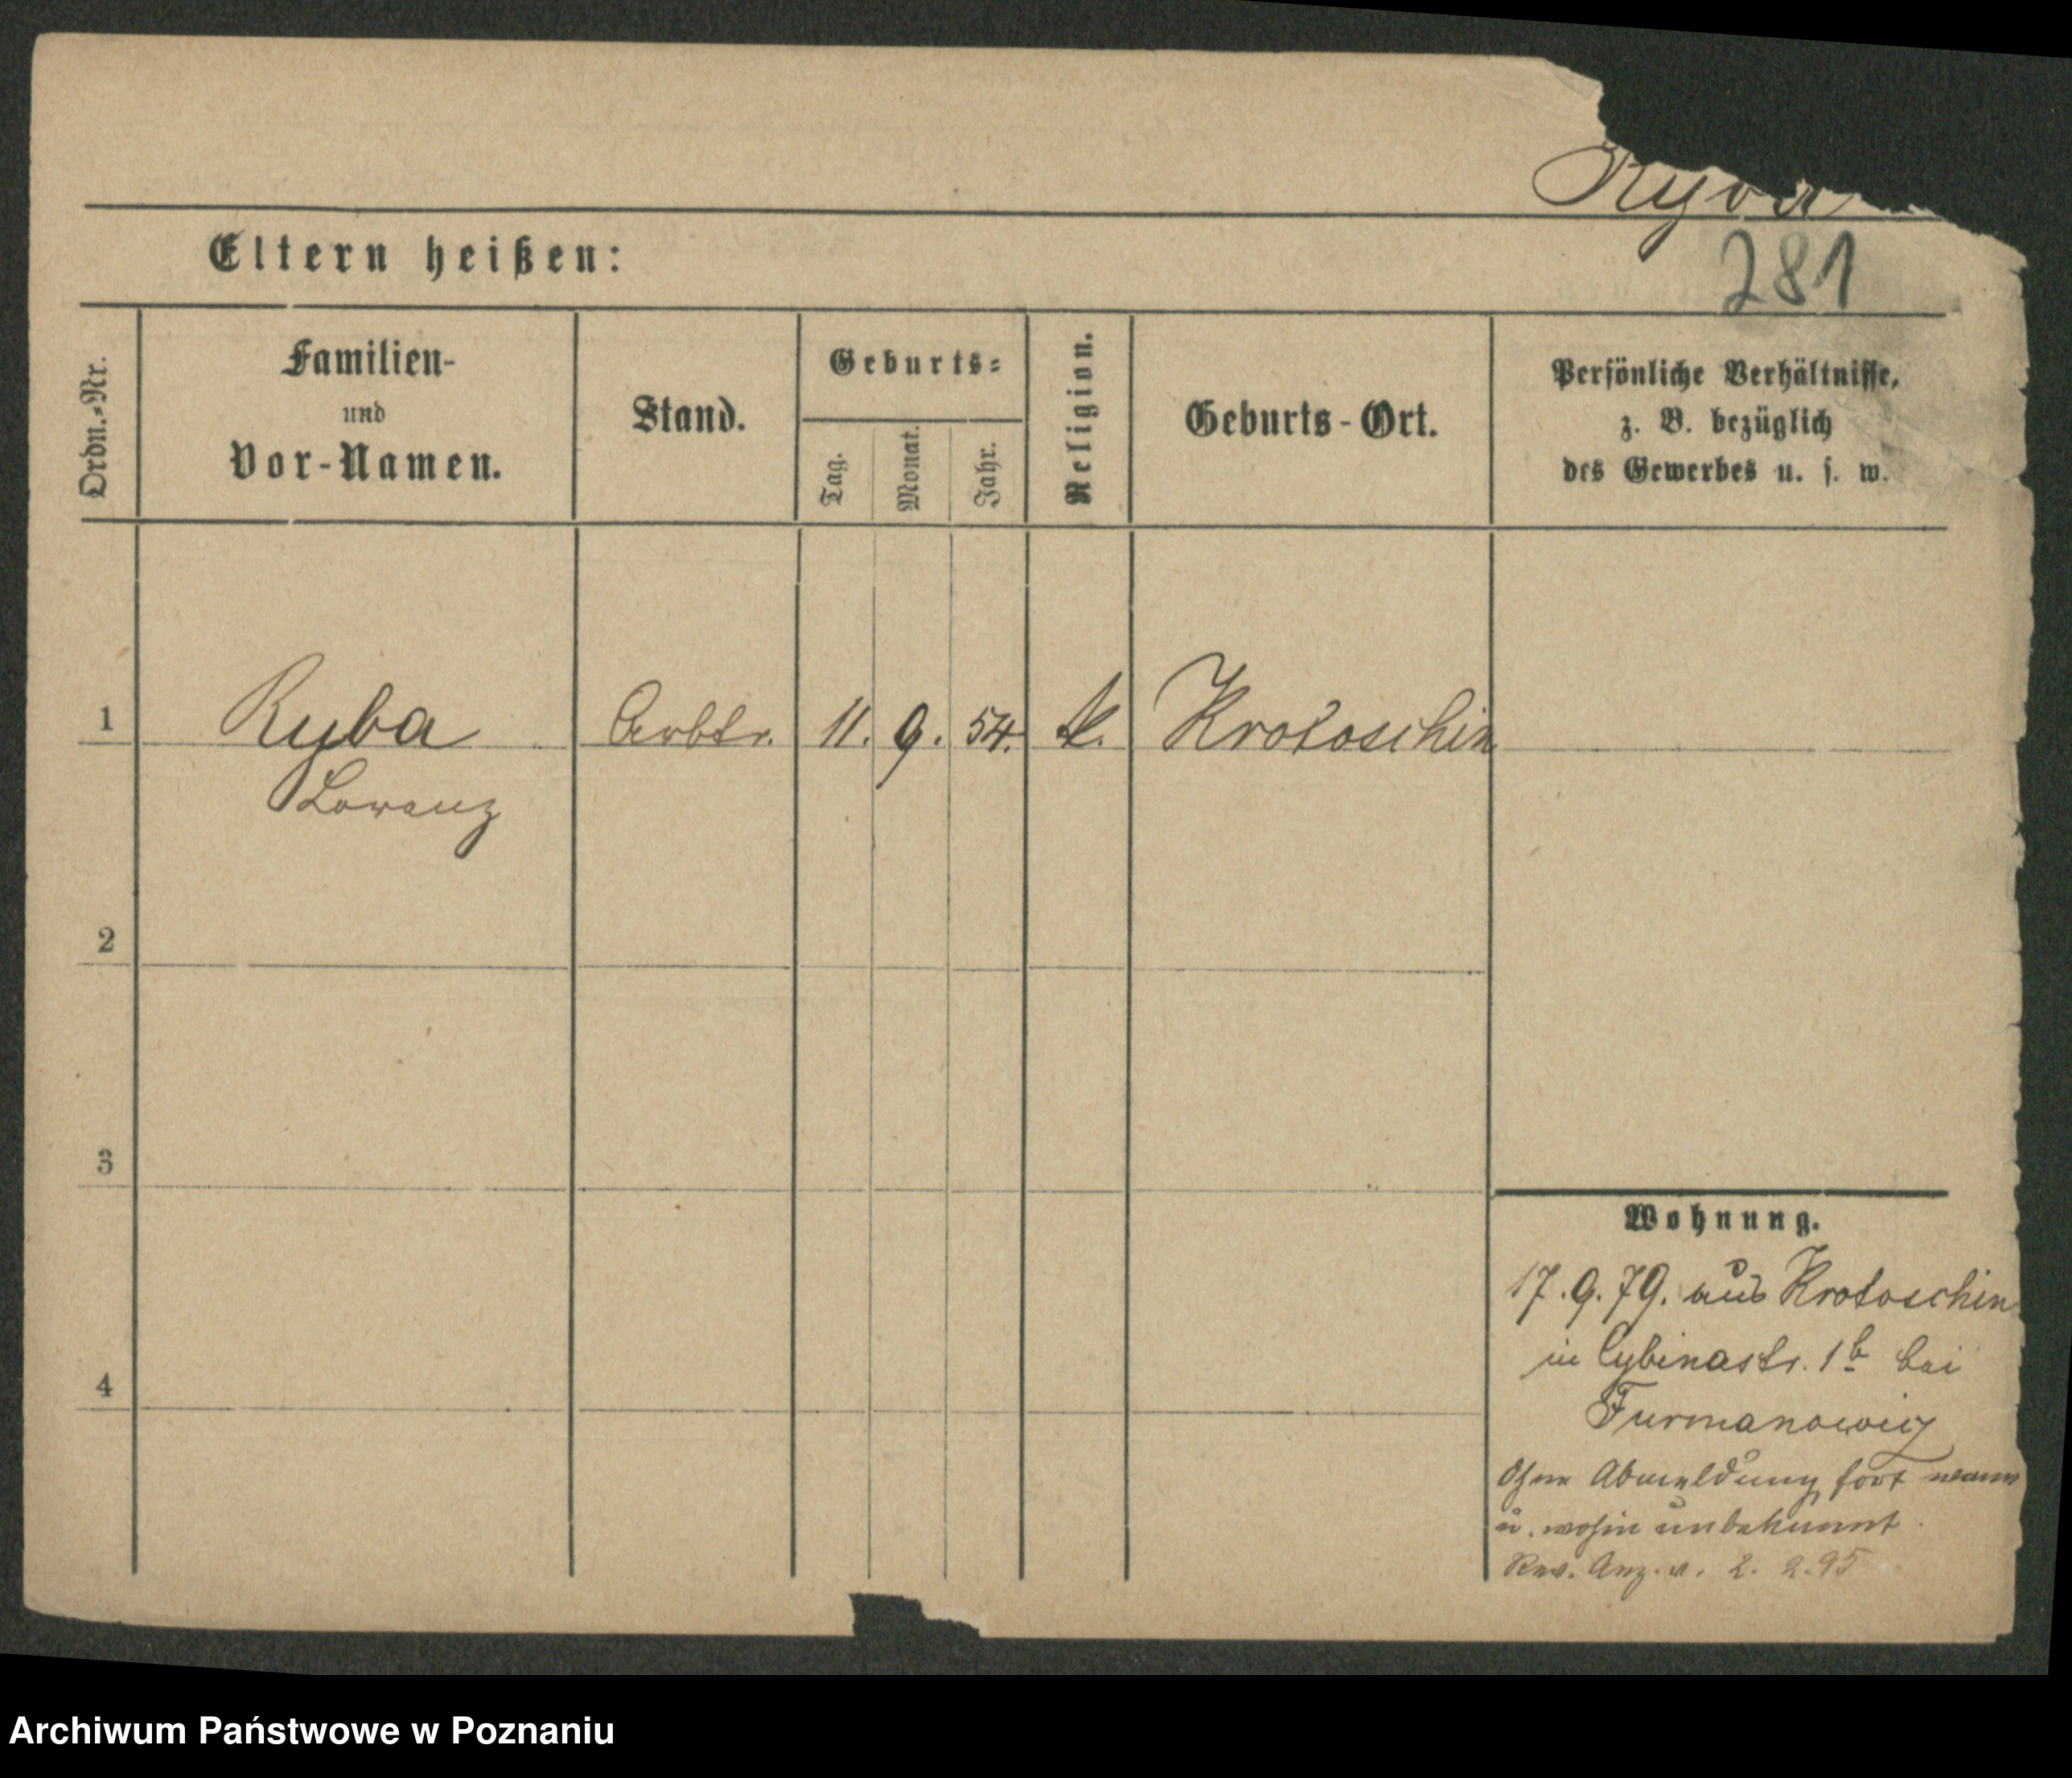 Ryba
281
Eltern heißen:
Ordn.-Nr.
Familien-
und
Vor-Namen.
Stand.
Geburts-
Tag.
Monat.
Jahr.
Religion.
Geburts-Ort.
Persönliche Verhältnisse,
z. B. bezüglich
des Gewerbes u. s. w.
1
Ryba
Lorenz
Arbtr.
11.
9.
54.
k.
Krotoschin
2
3
4
Wohnung.
17.9.79. aus Krotoschin
in Cybinastr. 1b bei
Furmanowicz
Ohne Abmeldung fort wann
u. wohin unbekannt
Rev. Anz. v. 2. 2. 95
Archiwum Państwowe w Poznaniu